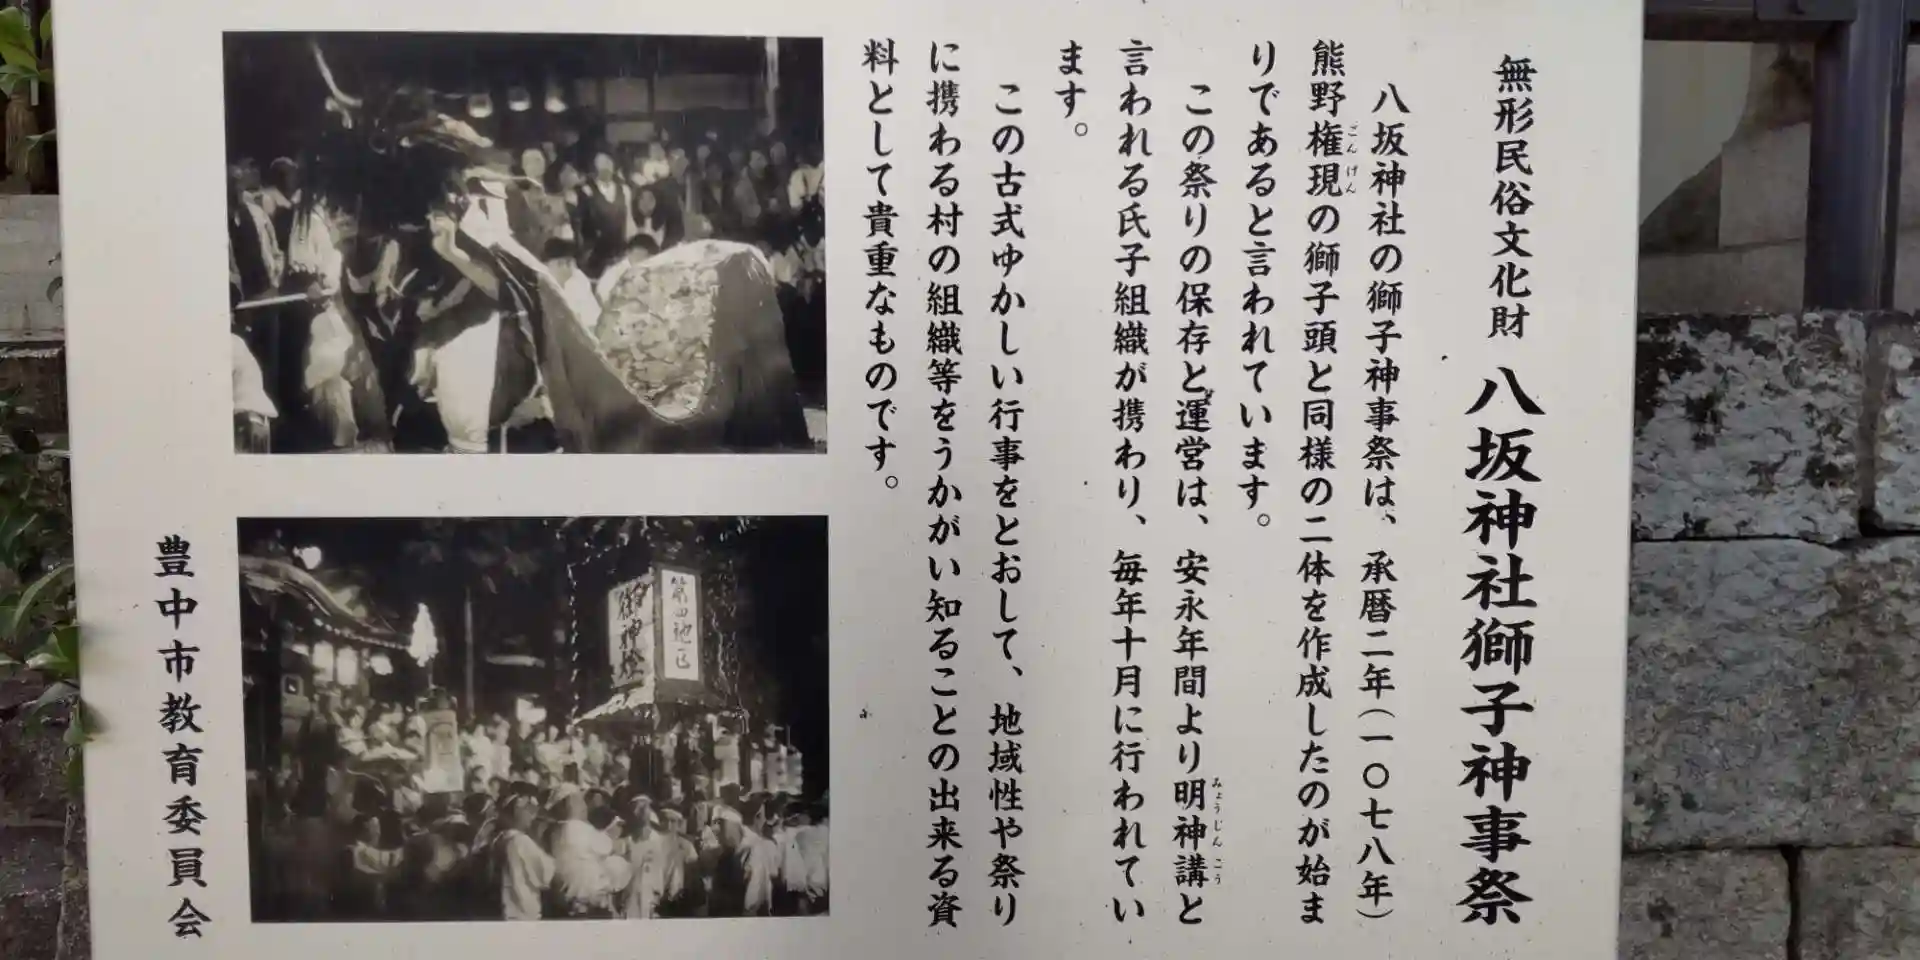 無形民俗文化財 八坂神社獅子神事祭
八坂神社の獅子神事祭は、承暦二年(一〇七八年)
熊野権現の獅子頭と同様の二体を作成したのが始ま
ごんげん
りであると言われています。
この祭りの保存と運営は、安永年間より明神講と
みょうじんこう
言われる氏子組織が携わり、毎年十月に行われてい
ます。
この古式ゆかしい行事をとおして、地域性や祭り
に携わる村の組織等をうかがい知ることの出来る資
料として貴重なものです。
御神燈
第四地区
豊中市教育委員会